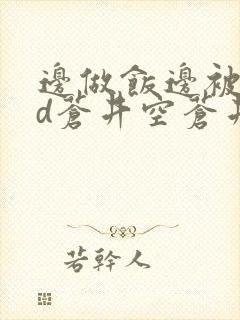 邊做飯邊被
d蒼井空蒼井
若幹人